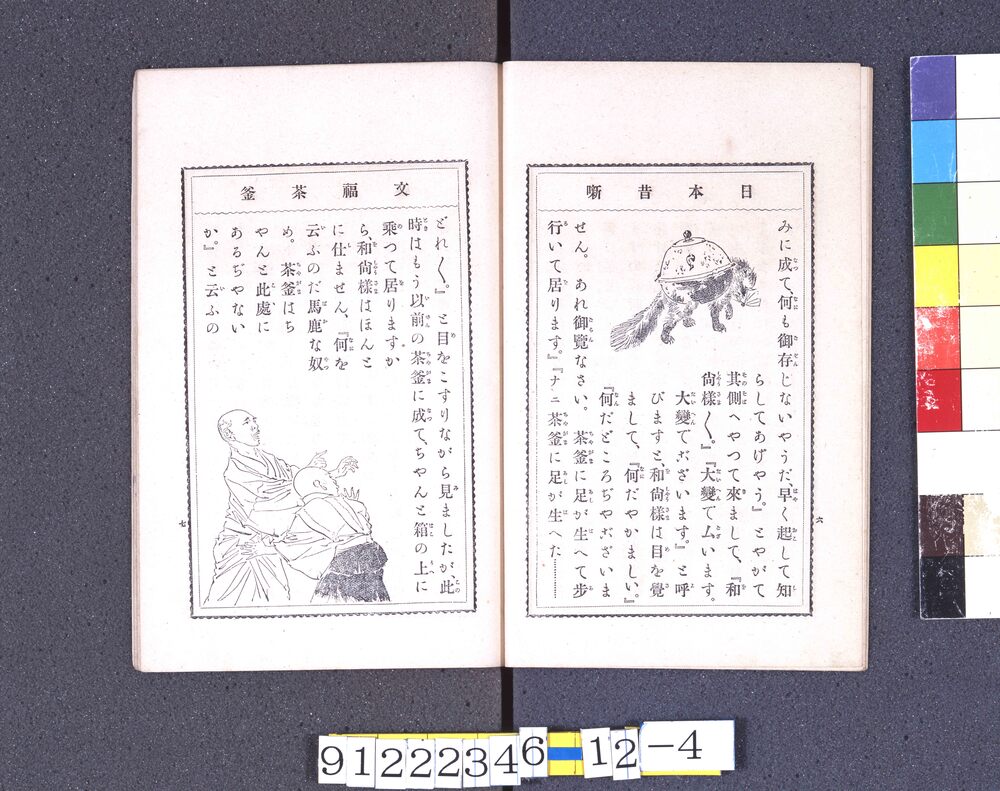 日本昔噺
みに成て、何も御存じないやうだ、早く起して知
らしてあげやう。』とやがて
其側へやつて來まして、『和
尚樣〱。』『大變でムいます。
大變でございます。』と呼
びますと、和尚樣は目を覺
まして、『何だやかましい。』
『何だどころぢやございま
せん。あれ御覽なさい。茶釜に足が生へて步
行いて居ります。』『ナニ茶釜に足が生へた………
六
文福茶釜
どれ〱。』と目をこすりながら見ましたが此
時はもう以前の茶釜に成て、ちやんと箱の上に
乘つて居りますか
ら、和尚樣はほんと
に仕ません、『何を
云ふのだ馬鹿な奴
め。茶釜はち
やんと此處に
あるぢやない
か。』と云ふの
七
91222346-12-4